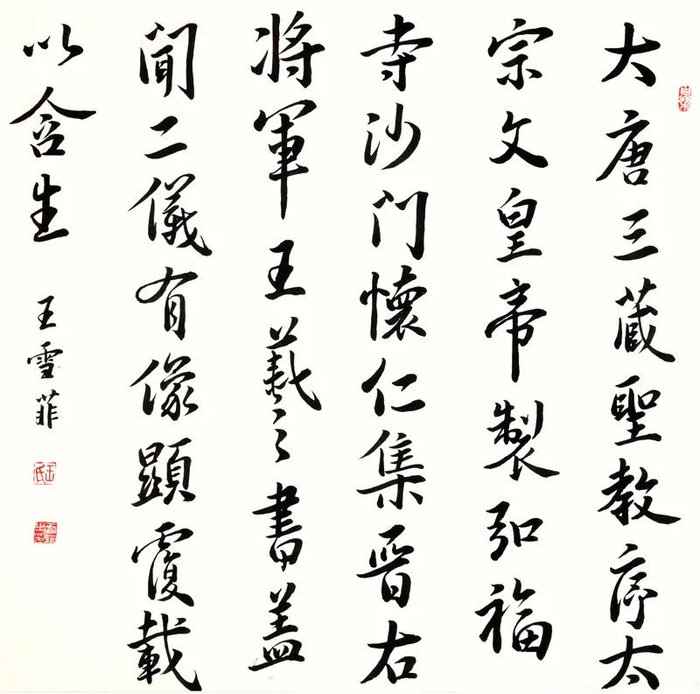 大唐三藏聖教序太
宗文皇帝製弘福
寺沙門懷仁集晉右
將軍王羲之書蓋
聞二儀有像顯覆載
以含生
王雪菲